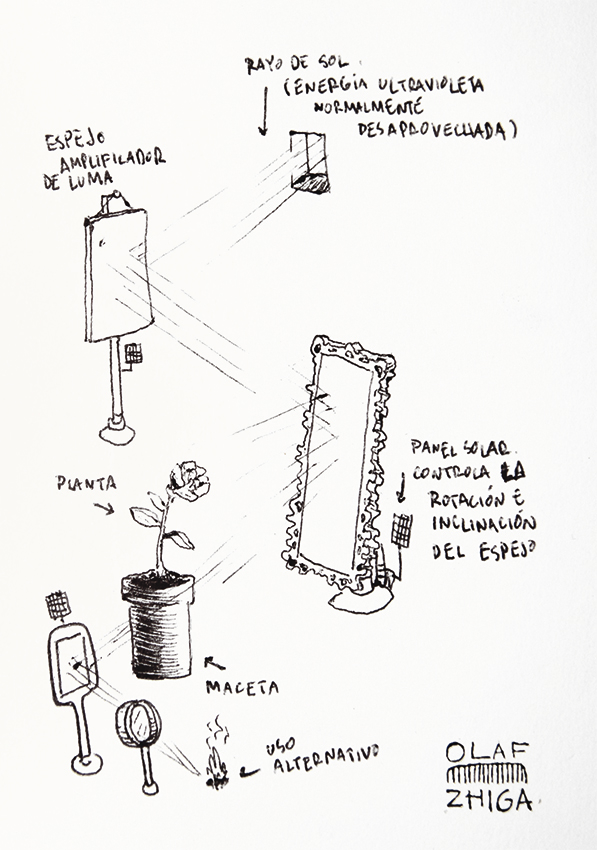 RAYO DE SOL.
(ENERGÍA ULTRAVIOLETA
NORMALMENTE
DESAPROVECHADA)
ESPEJO
AMPLIFILADOR
DE LUMA
PLANTA
PANEL SOLAR.
CONTROLA LA
ROTACIÓN E
INCLINACIÓN
DEL ESPEJO
MACETA
USO
ALTERNATIVO
OLAF
ZHIGA.